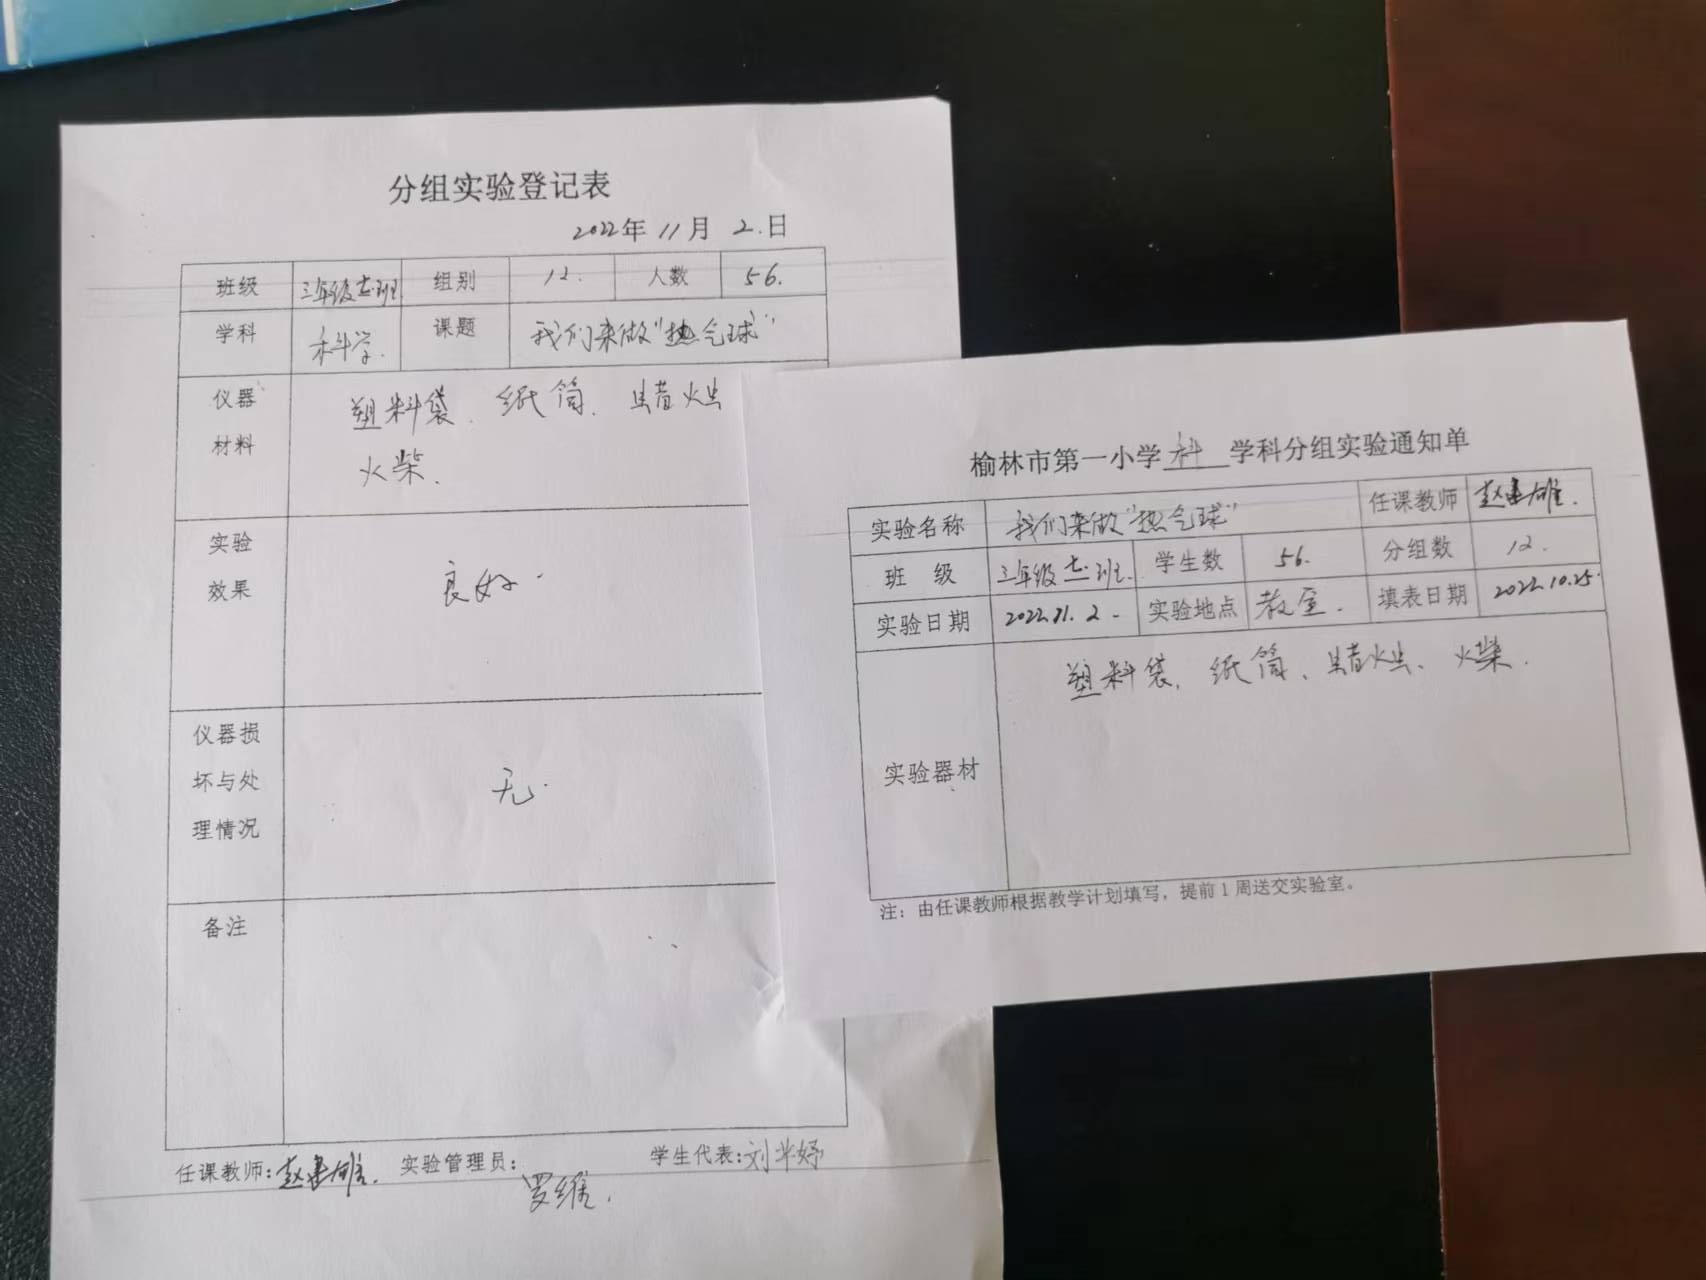 分组实验登记表
2022年 11月 2.日
班级 三年级七班 组别 12. 人数 56.
学科 科学. 课题 我们来做“热气球”
仪器 塑料袋、纸筒、蜡烛
材料 火柴.
实验
效果
良好.
仪器损
坏与处
理情况
无.
备注
任课教师:赵建雄. 实验管理员: 罗维. 学生代表:刘 妤
榆林市第一小学 科 学科分组实验通知单
实验名称 我们来做“热气球” 任课教师 赵建雄.
班 级 三年级七班. 学生数 56. 分组数 12.
实验日期 2022.11.2. 实验地点 教室. 填表日期 2022.10.25.
塑料袋、纸筒、蜡烛、火柴.
实验器材
注：由任课教师根据教学计划填写，提前1周送交实验室。